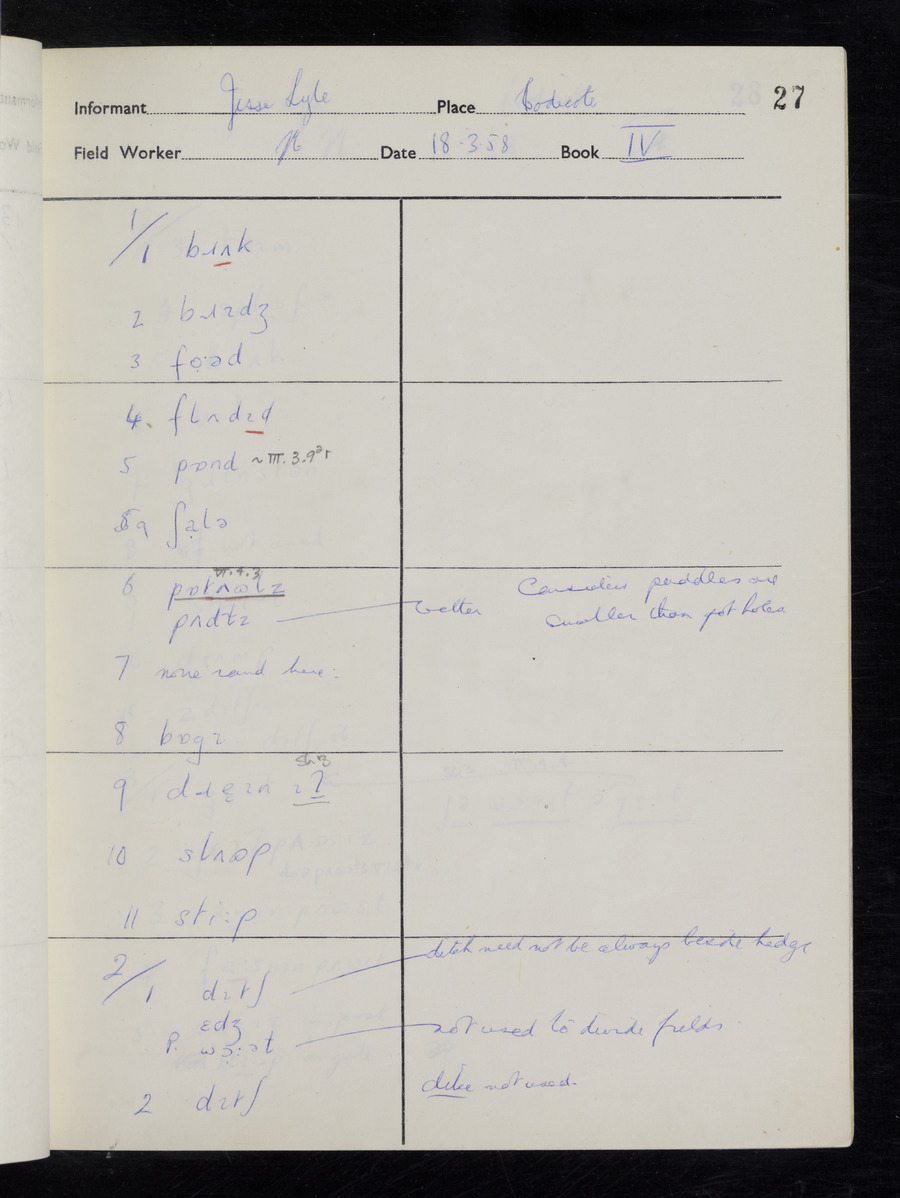 27
Informant Jesse Lyle Place Bodicote
Field Worker Date 18.3.58 Book IV
1/1 bɹʌk
2 bɹɪdʒ
3 fo̤·əd
4. flʌdɪd
5 pɒnd ~ III.3.9
5a ʃalə
6 pɒtʌʊlz Considers puddles are
pʌdlz water smaller than pot holes
7 none round here:
8 bɒgz
9 dɹeɪn
10 slʌʊp
11 sti:p
2/1 dɪtʃ ditch need not be always beside hedge
ɛdʒ
p. wɔ̤:ət not used to divide fields.
2 dɪtʃ dike not used.